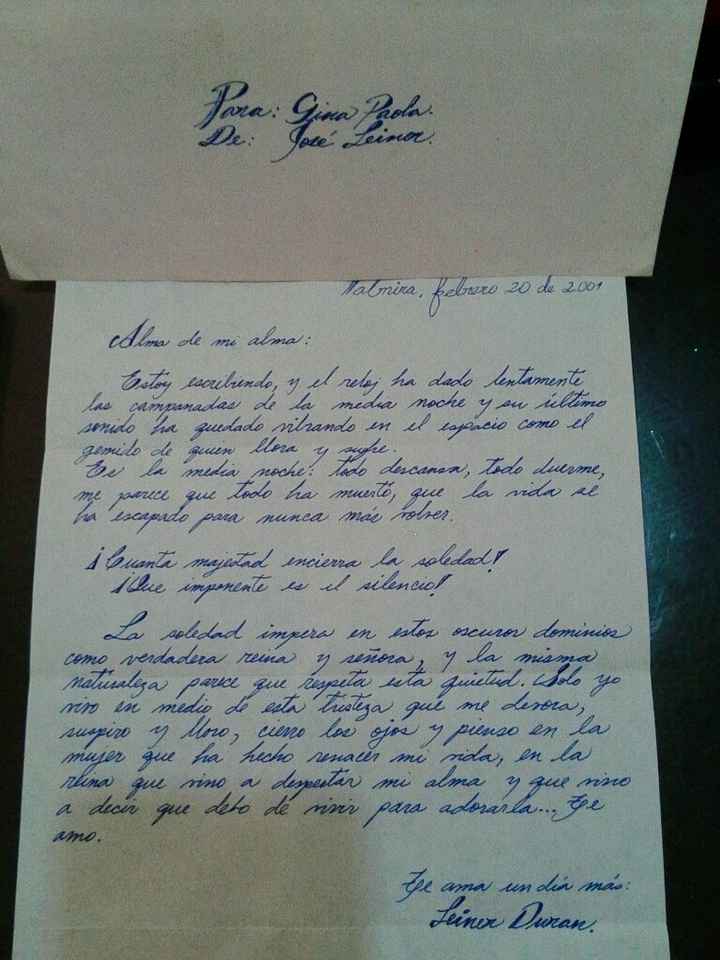 Para: Gina Paola.
De: José Leiner.
Palmira, febrero 20 de 2001
Alma de mi alma:
Estoy escribiendo, y el reloj ha dado lentamente
las campanadas de la media noche y su último
sonido ha quedado vibrando en el espacio como el
gemido de quien llora y sufre.
Es la media noche: todo descansa, todo duerme,
me parece que todo ha muerto, que la vida se
ha escapado para nunca más volver.
¡Cuanta majestad encierra la soledad!
¡Que imponente es el silencio!
La soledad impera en estos oscuros dominios
como verdadera reina y señora, y la misma
naturaleza parece que respeta esta quietud. Solo yo
vivo en medio de esta tristeza que me devora,
suspiro y lloro, cierro los ojos y pienso en la
mujer que ha hecho renacer mi vida, en la
reina que vino a despertar mi alma y que vino
a decir que debo de vivir para adorarla... Te
amo.
Te ama un día más:
Leiner Duran.